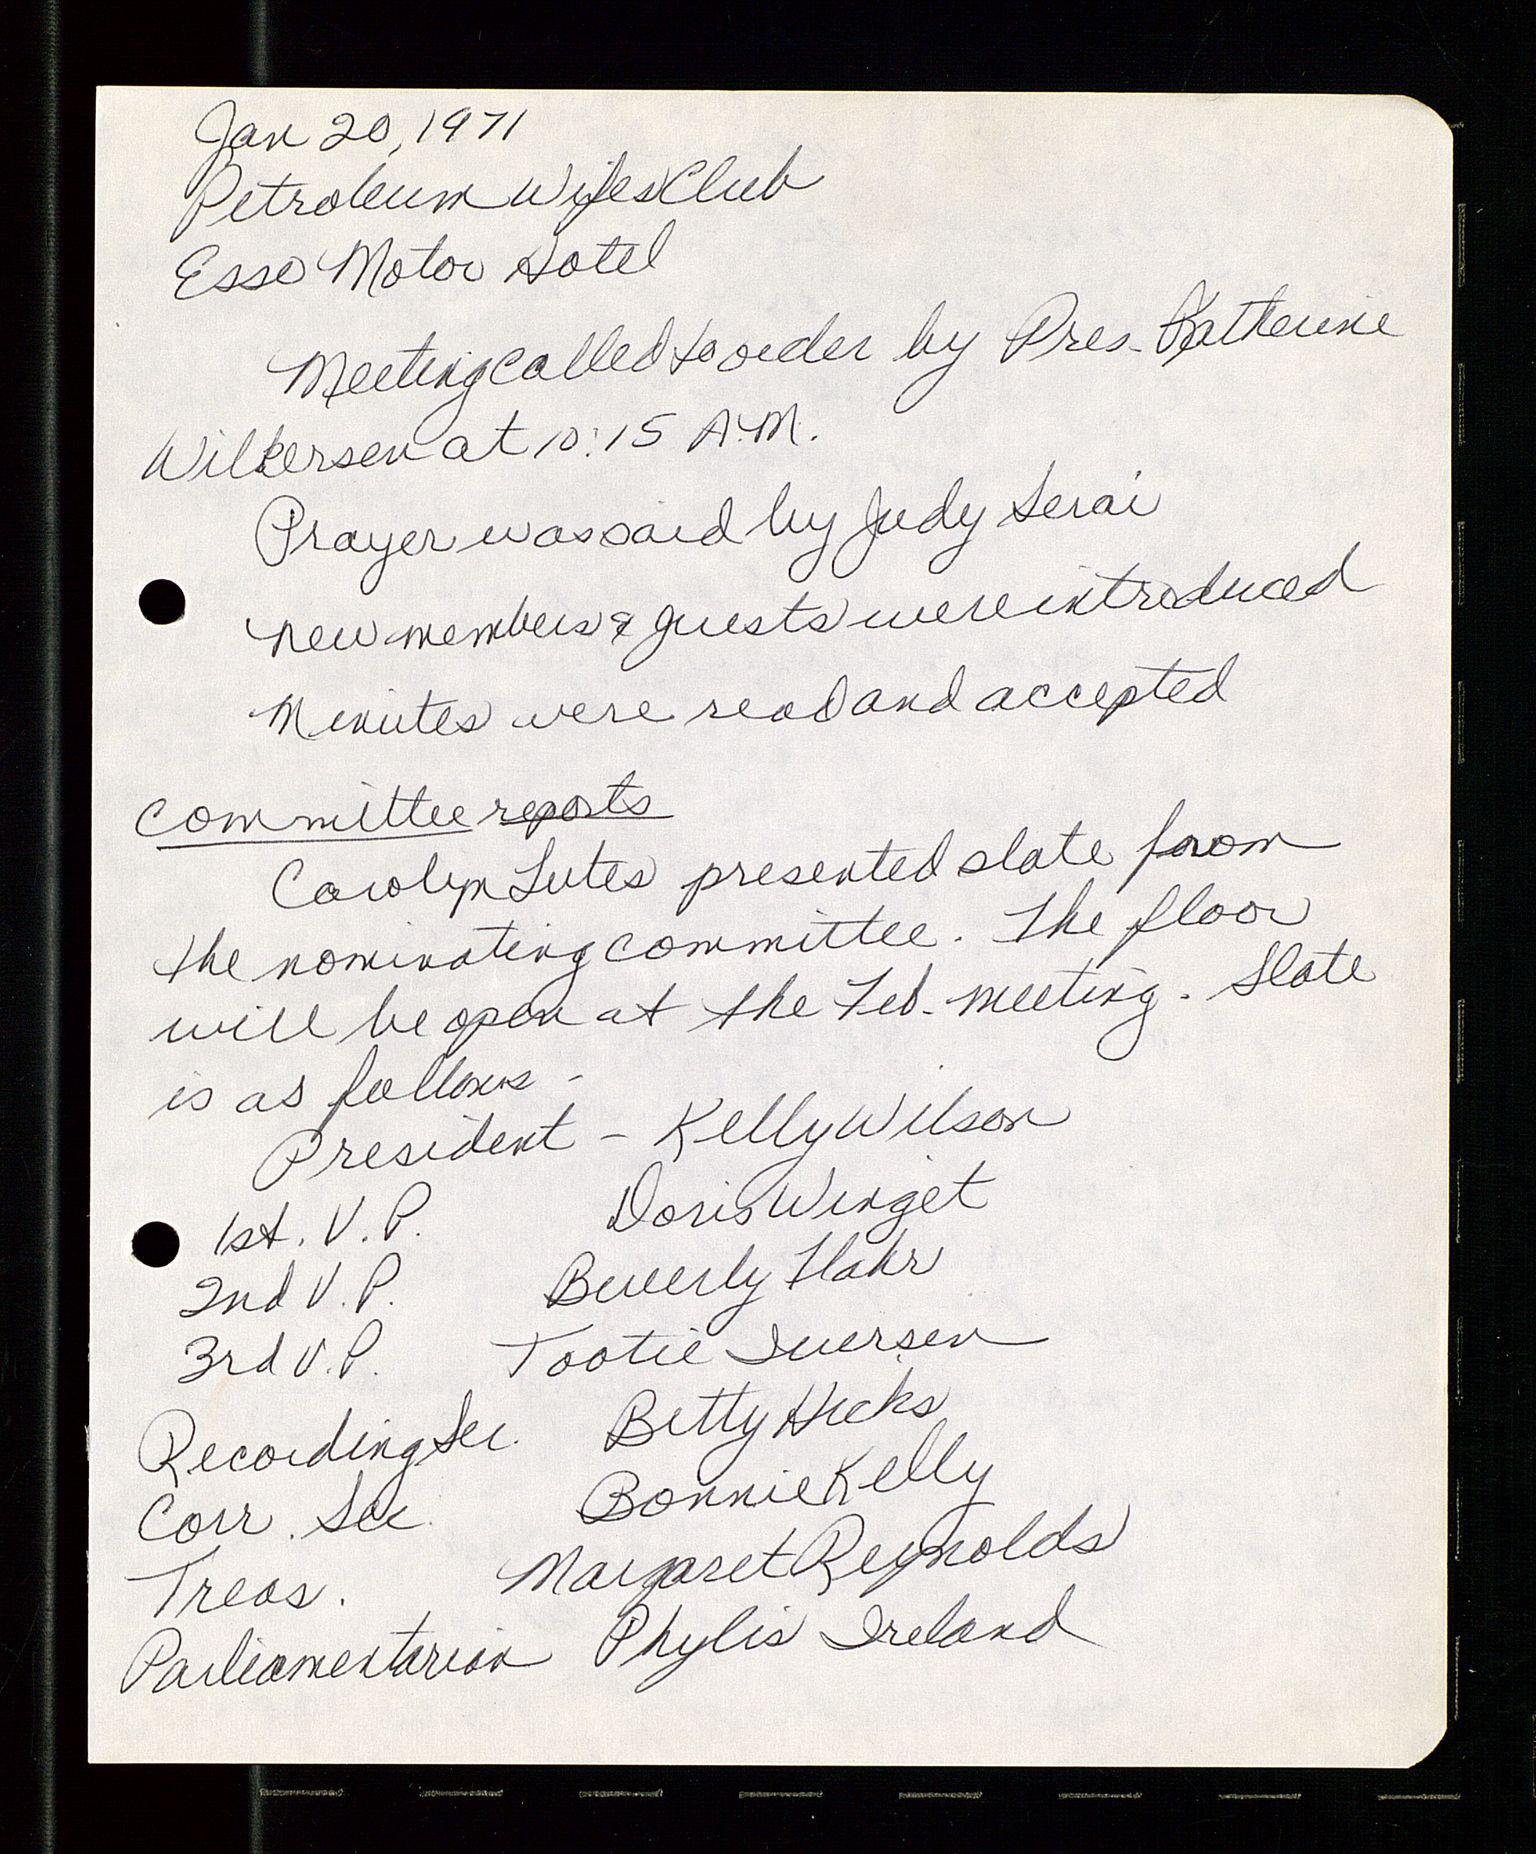 Jan 20, 1971
Petroleum Wifes Club
Esso Motor Hotel
Meeting called to order by Pres. Katherine
Wilkersen at 10:15 A.M.
Prayer was said by Judy Serai
New members & guests were introduced
Minutes were read and accepted
Committee reports
Carolyn Lutes presented slate from
the nominating committee. The floor
will be open at the Feb. meeting. Slate
is as follows -
President - Kelly Wilson
1st. V.P. Doris Winget
2nd V.P. Beverly Hahr
3rd V.P. Tootie Iversen
Recording Sec. Betty Hicks
Corr. Sec. Bonnie Kelly
Treas. Margaret Reynolds
Parliamentarian Phylis Ireland